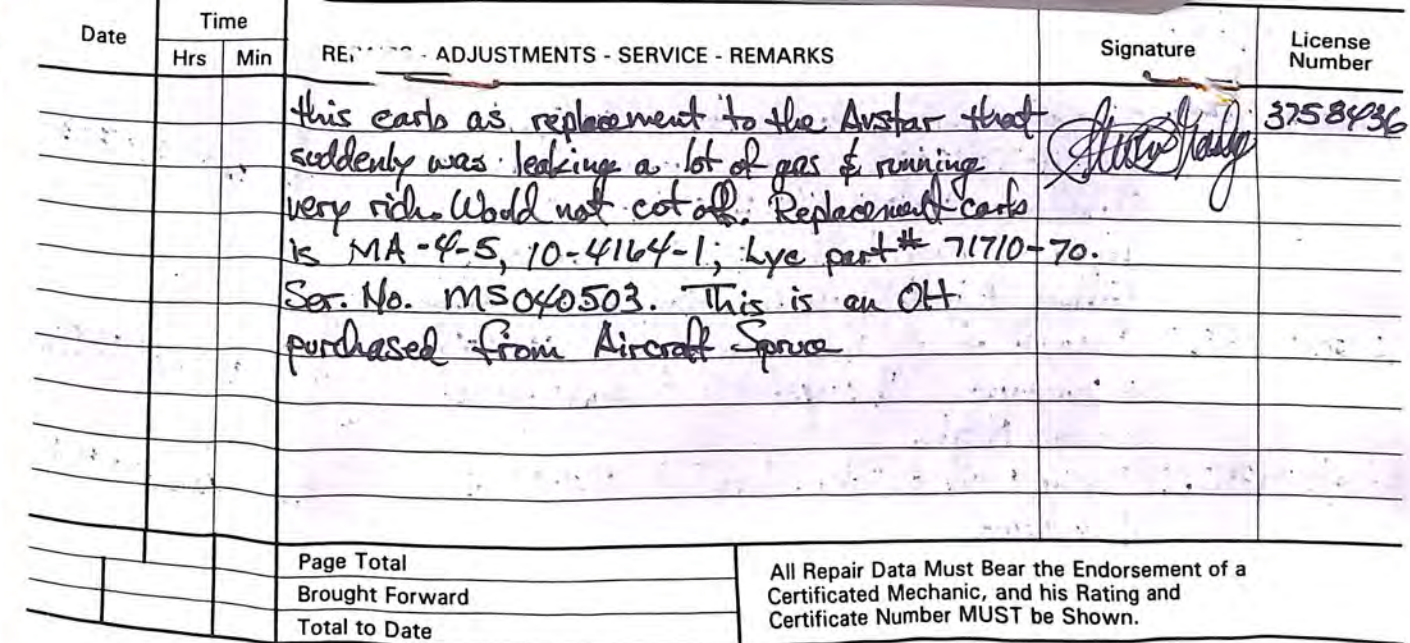 Date
Time
Hrs Min
REPAIRS - ADJUSTMENTS - SERVICE - REMARKS
Signature
License
Number
this carb as replacement to the Avstar that
suddenly was leaking a lot of gas & running
very rich. Would not cut off. Replacement carb
is MA-4-5, 10-4164-1; Lyc part# 71710-70.
Ser. No. MS040503. This is an OH
purchased from Aircraft Spruce
3758436
Page Total
Brought Forward
Total to Date
All Repair Data Must Bear the Endorsement of a
Certificated Mechanic, and his Rating and
Certificate Number MUST be Shown.